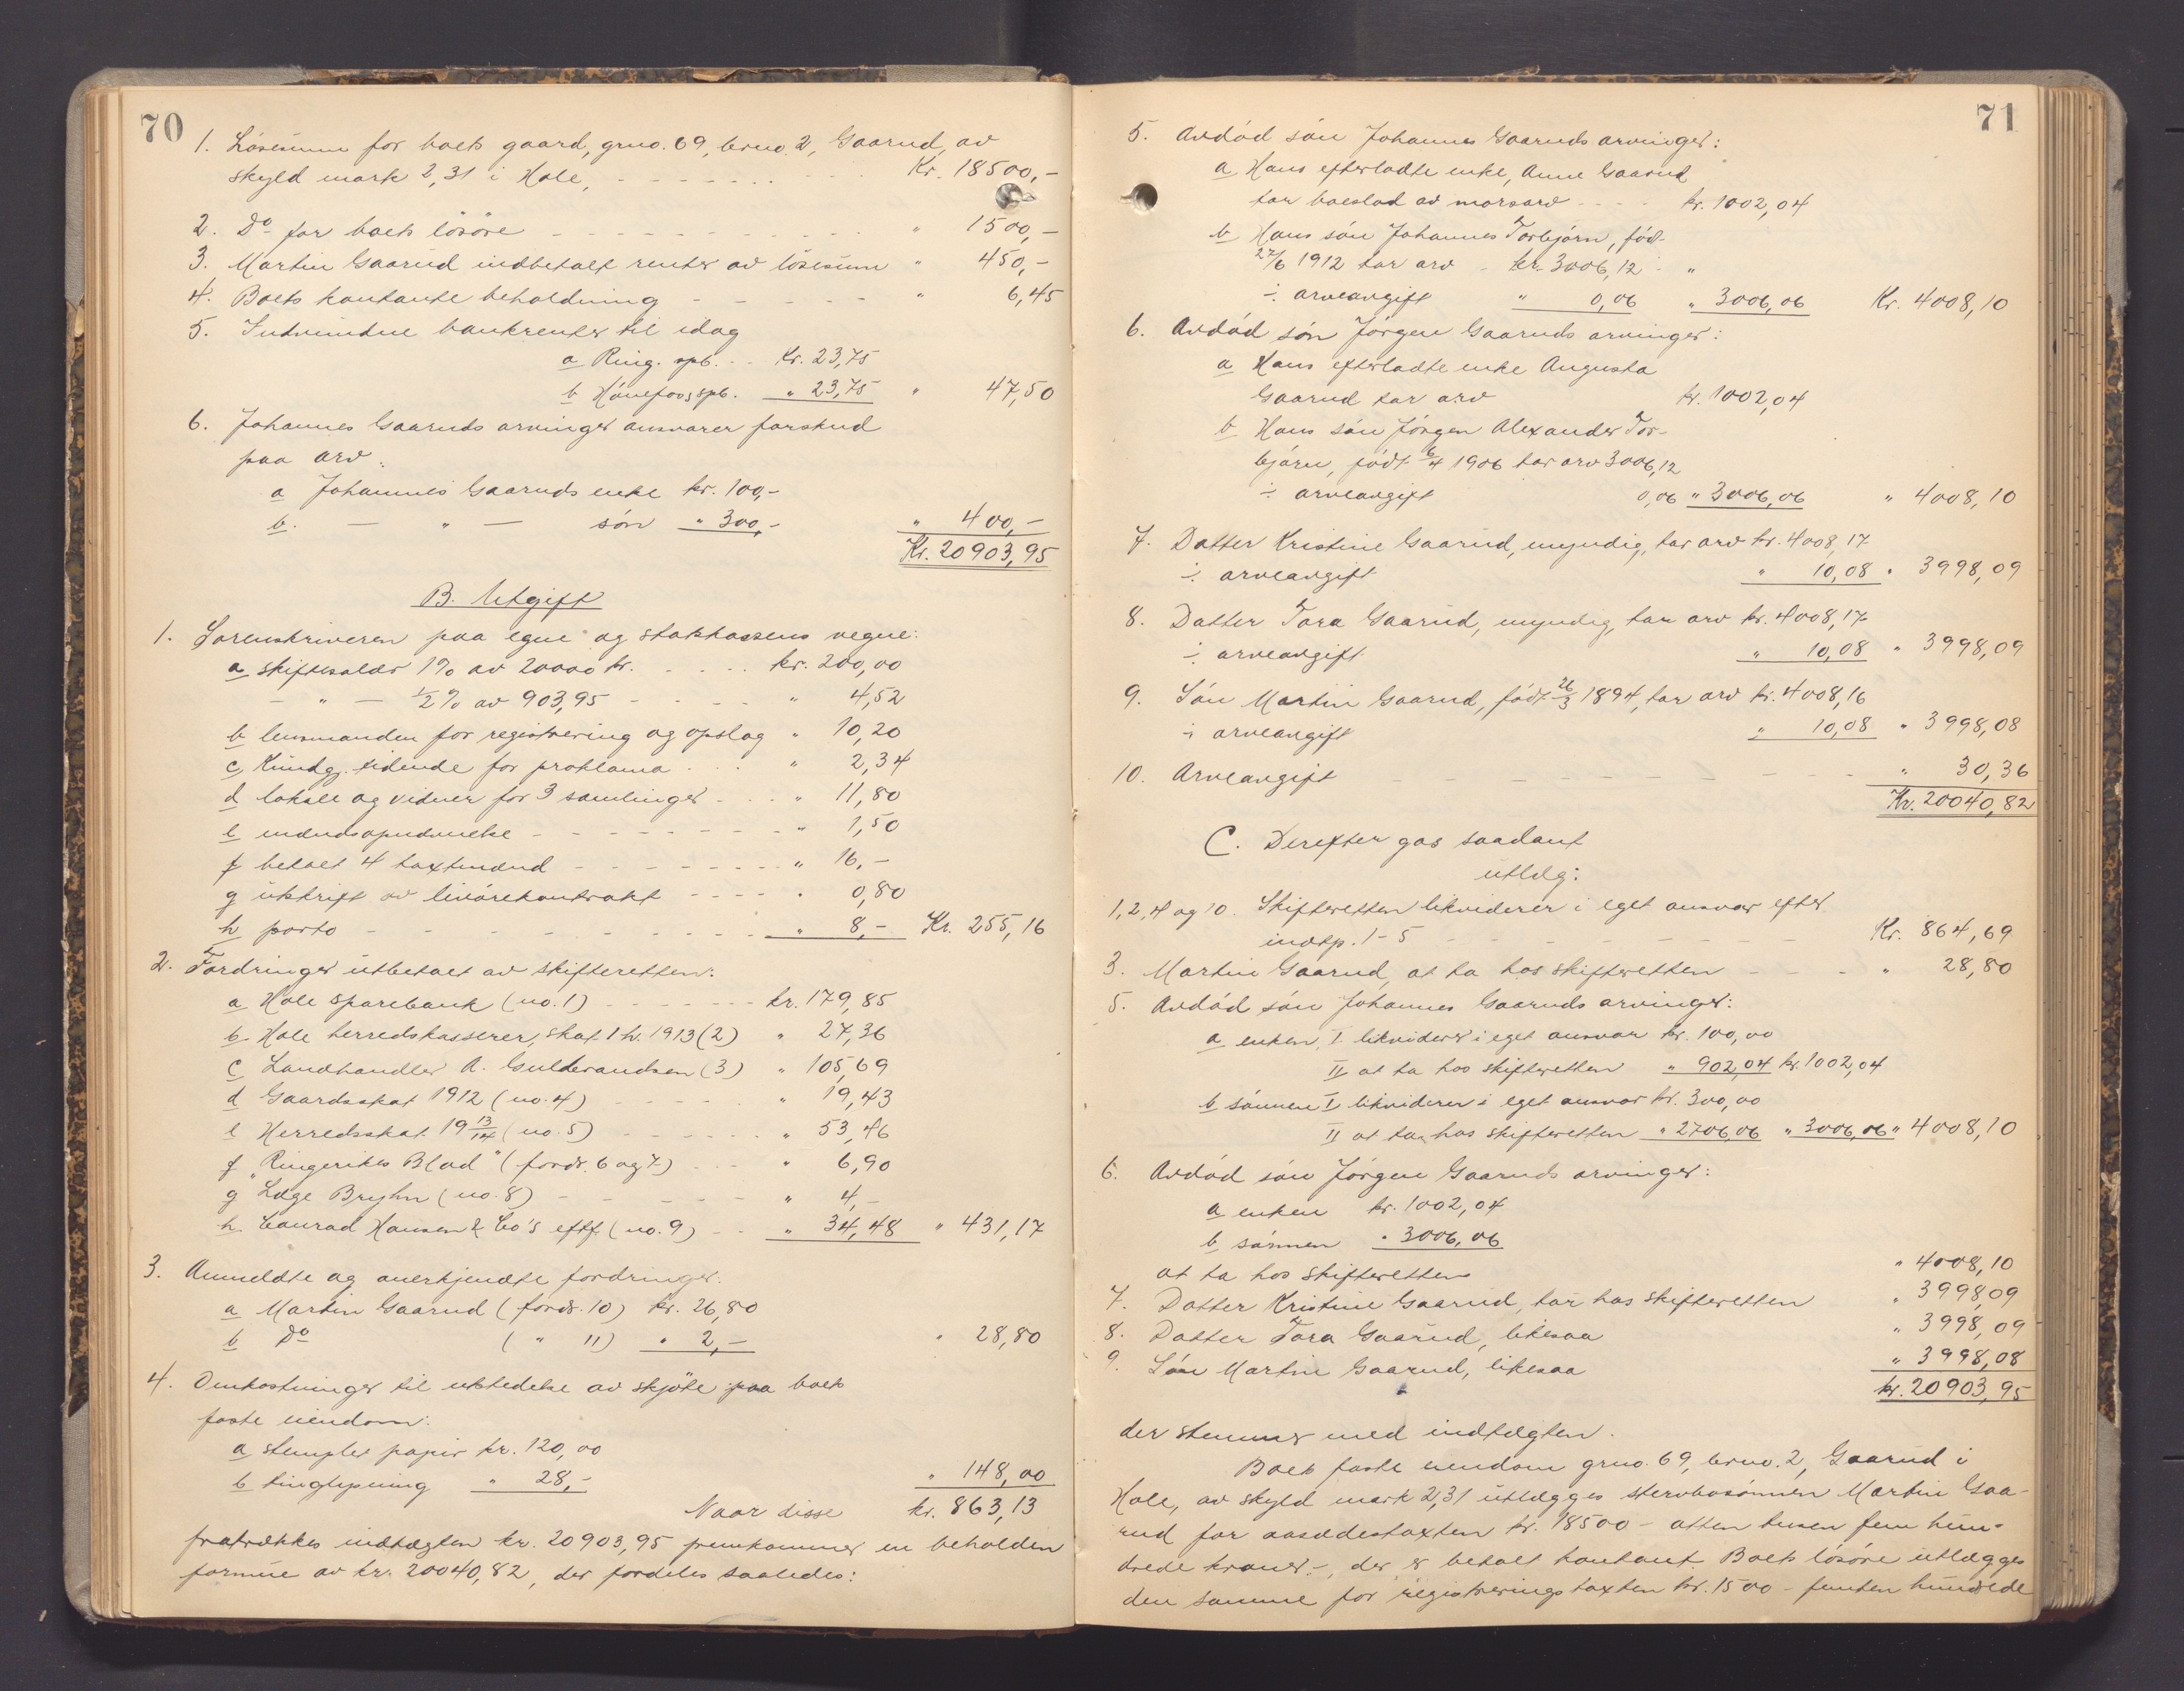 70
1. Løsesum for boets gaard, grno. 69, brno. 2, Gaarud, av
skyld mark 2,31 i Hole, Kr. 18500,-
2. Do for boets løsøre " 1500,-
3. Martin Gaarud indbetalt renter av løsesum " 450,-
4. Boets kontante beholdning " 6,45
5. Indvundne bankrenter til idag
a Ring. spb. Kr. 23,75
b Hønefoss spb. " 23,75 " 47,50
6. Johannes Gaaruds arvinger ansvarer forskud
paa arv:
a Johannes Gaaruds enke kr. 100,-
b. — " — søn " 300,- " 400,-
Kr. 20903,95
B. Utgift
1. Sorenskriveren paa egne og statskassens vegne:
a skiftesalær 1% av 20000 kr. kr. 200,00
— " — ½% av 903,95 " 4,52
b lensmanden for registrering og opslag " 10,20
c, Kundg. tidende for proklama " 2,34
d lokale og vidner for 3 samlinger " 11,80
e mændsopnævnelse " 1,50
f betalt 4 taxtmænd " 16,-
g utskrift av livørekontrakt " 0,80
h porto " 8,- Kr. 255,16
2. Fordringer utbetalt av skifteretten:
a Hole sparebank (no. 1) kr. 179,85
b. Hole herredskasserer, skat 1 h. 1913 (2) " 27,36
c Landhandler A. Gulbrandsen (3) " 105,69
d Gaardsskat 1912 (no. 4) " 19,43
e Herredsskat 19 13/14 (no. 5) " 53,46
f „Ringerikes Blad" (fordr. 6 og 7) " 6,90
g Læge Bryhn (no. 8) " 4,-
h. Conrad Hansen & Co's eftf. (no. 9) " 34,48 " 431,17
3. Anmeldte og anerkjendte fordringer:
a Martin Gaarud (fordr. 10) kr. 26,80
b Do ( " 11) " 2,- " 28,80
4. Omkostninger til utstedelse av skjøte paa boets
faste eiendom:
a stemplet papir kr. 120,00
b tinglysning " 28,- " 148,00
Naar disse kr. 863,13
fratrækkes indtægten kr. 20903,95 fremkommer en beholden
formue av kr. 20040,82, der fordeles saaledes:
71
5. Avdød søn Johannes Gaaruds arvinger:
a Hans efterladte enke, Anne Gaarud
tar boeslod av morsarv kr. 1002,04
b Hans søn Johannes Torbjørn, fød.
27/6 1912 tar arv kr. 3006,12 "
÷ arveavgift " 0,06 " 3006,06 Kr. 4008,10
6. Avdød søn Jørgen Gaaruds arvinger:
a Hans efterladte enke Augusta
Gaarud tar arv kr. 1002,04
b Hans søn Jørgen Alexander Tor-
bjørn, født 6/4 1906 tar arv 3006,12
÷ arveavgift 0,06 " 3006,06 " 4008,10
7. Datter Kristine Gaarud, myndig, tar arv kr. 4008,17
÷ arveavgift " 10,08 " 3998,09
8. Datter Tora Gaarud, myndig, tar arv kr. 4008,17
÷ arveavgift " 10,08 " 3998,09
9. Søn Martin Gaarud, født 26/3 1894, tar arv kr. 4008,16
÷ arveavgift " 10,08 " 3998,08
10. Arveavgift " 30,36
Kr. 20040,82
C. Derefter gas saadant
utlæg:
1, 2, 4 og 10. Skifteretten likviderer i eget ansvar efter
indtp. 1-5 Kr. 864,69
3. Martin Gaarud, at ta hos skifteretten " 28,80
5. Avdød søn Johannes Gaaruds arvinger:
a enken, I likviderer i eget ansvar kr. 100,00
II at ta hos skifteretten " 902,04 kr. 1002,04
b sønnen I likviderer i eget ansvar kr. 300,00
II at ta hos skifteretten " 2706,06 " 3006,06 " 4008,10
6. Avdød søn Jørgen Gaaruds arvinger:
a enken kr. 1002,04
b sønnen " 3006,06
at ta hos skifteretten " 4008,10
7. Datter Kristine Gaarud, tar hos skifteretten " 3998,09
8. Datter Tora Gaarud, likesaa " 3998,09
9. Søn Martin Gaarud, likesaa " 3998,08
kr. 20903,95
der stemmer med indtægten.
Boets faste eiendom grno. 69, brno. 2, Gaarud i
Hole, av skyld mark 2,31 utlægges stervbosønnen Martin Gaa-
rud for aasædestaxten kr. 18500 - atten tusen fem hun-
drede kroner -, der er betalt kontant Boets løsøre utlægges
den samme for registreringstaxten kr. 1500 - femten hundrede